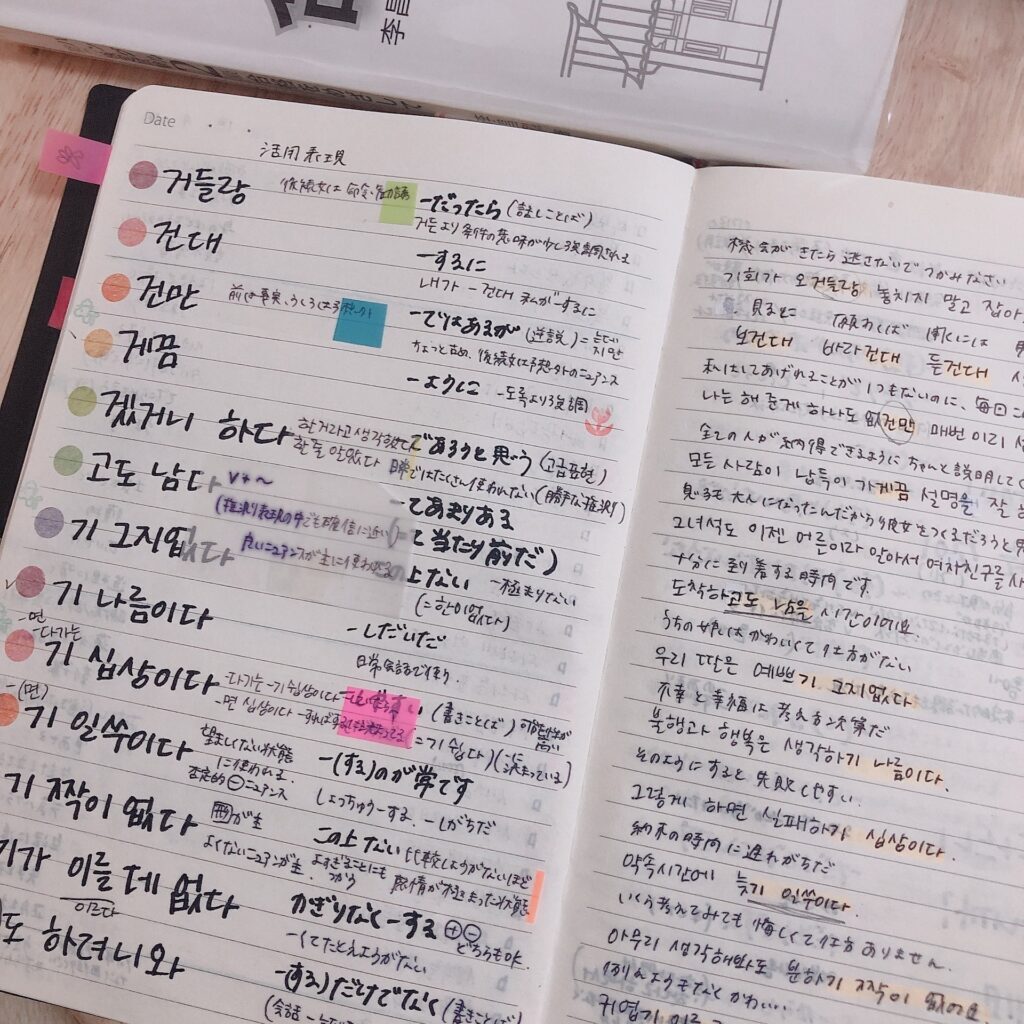 李昌
Date
活用表現
거들랑
後続文は命令・勧誘
-だったら (話しことば)
거든より条件の意味が少し強調される
건대
-するに
내가 -건대 私がーするに
건만
-ではあるが (逆説) = 는데
지만
ちょっと古め、後続文は予想外のニュアンス
게끔
-ように
-도록より強調
겠거니 하다
한거라고 생각했다
であろうと思う (고급표현)
할 줄 알았다
日常ではたくさん使われない (勝手な推測)
고도 남다
V+~
てあまりある
(推測表現の中でも確信に近い)
て当たり前だ)
良いニュアンスが主に使われる
기 그지없다
上ない
-極まりない
(=한이없다)
기 나름이다
-しだいだ
日常会話で
-면
-다가는
기 십상이다
-다가는 -기 십상이다
-면 십상이다
い (書きことば)
可能性が高い
(=기 쉽다)
(に決まっている)
-(면)
기 일쑤이다
望ましくない状態
に使われる。
否定的⊖ニュアンス
-(する)のが常です
しょっちゅうーする、-しがちだ
기 짝이 없다
この上ない
比較しようがないほど
よくないニュアンスが主、
よすぎることにも
感情が極まった状態
기가 이를 데 없다
이르다
かぎりなくーする ⊕⊖
どちらもok
-くてたとえようがない
도 하려니와
-(する)だけでなく (書きことば)
機会がきたら逃さないでつかみなさい
기회가 오거들랑 놓치지 말고 잡아
見るに 願わくば 聞くには
보건대 바라건대 듣건대
私はしてあげれることが1つもないのに、毎日
나는 해 준게 하나도 없건만 매번 이리
全ての人が納得できるようにちゃんと説明して
모든 사람이 납득이 가게끔 설명을 잘
그녀석도 이젠 어른이라 알아서 여자친구를
十分に到着する時間です。
도착하고도 남을 시간이에요.
うちの娘はかわいくて仕方がない
우리 딸은 예쁘기 그지없다
不幸と幸福は考え方次第だ
불행과 행복은 생각하기 나름이다.
そのようにすると失敗しやすい。
그렇게 하면 실패하기 십상이다.
約束の時間に遅れがちだ
약속시간에 늦기 일쑤이다.
いくら考えてみても悔しくて仕方ありません。
아무리 생각해봐도 분하기 짝이 없어요
例えようもなくかわいい
귀엽기